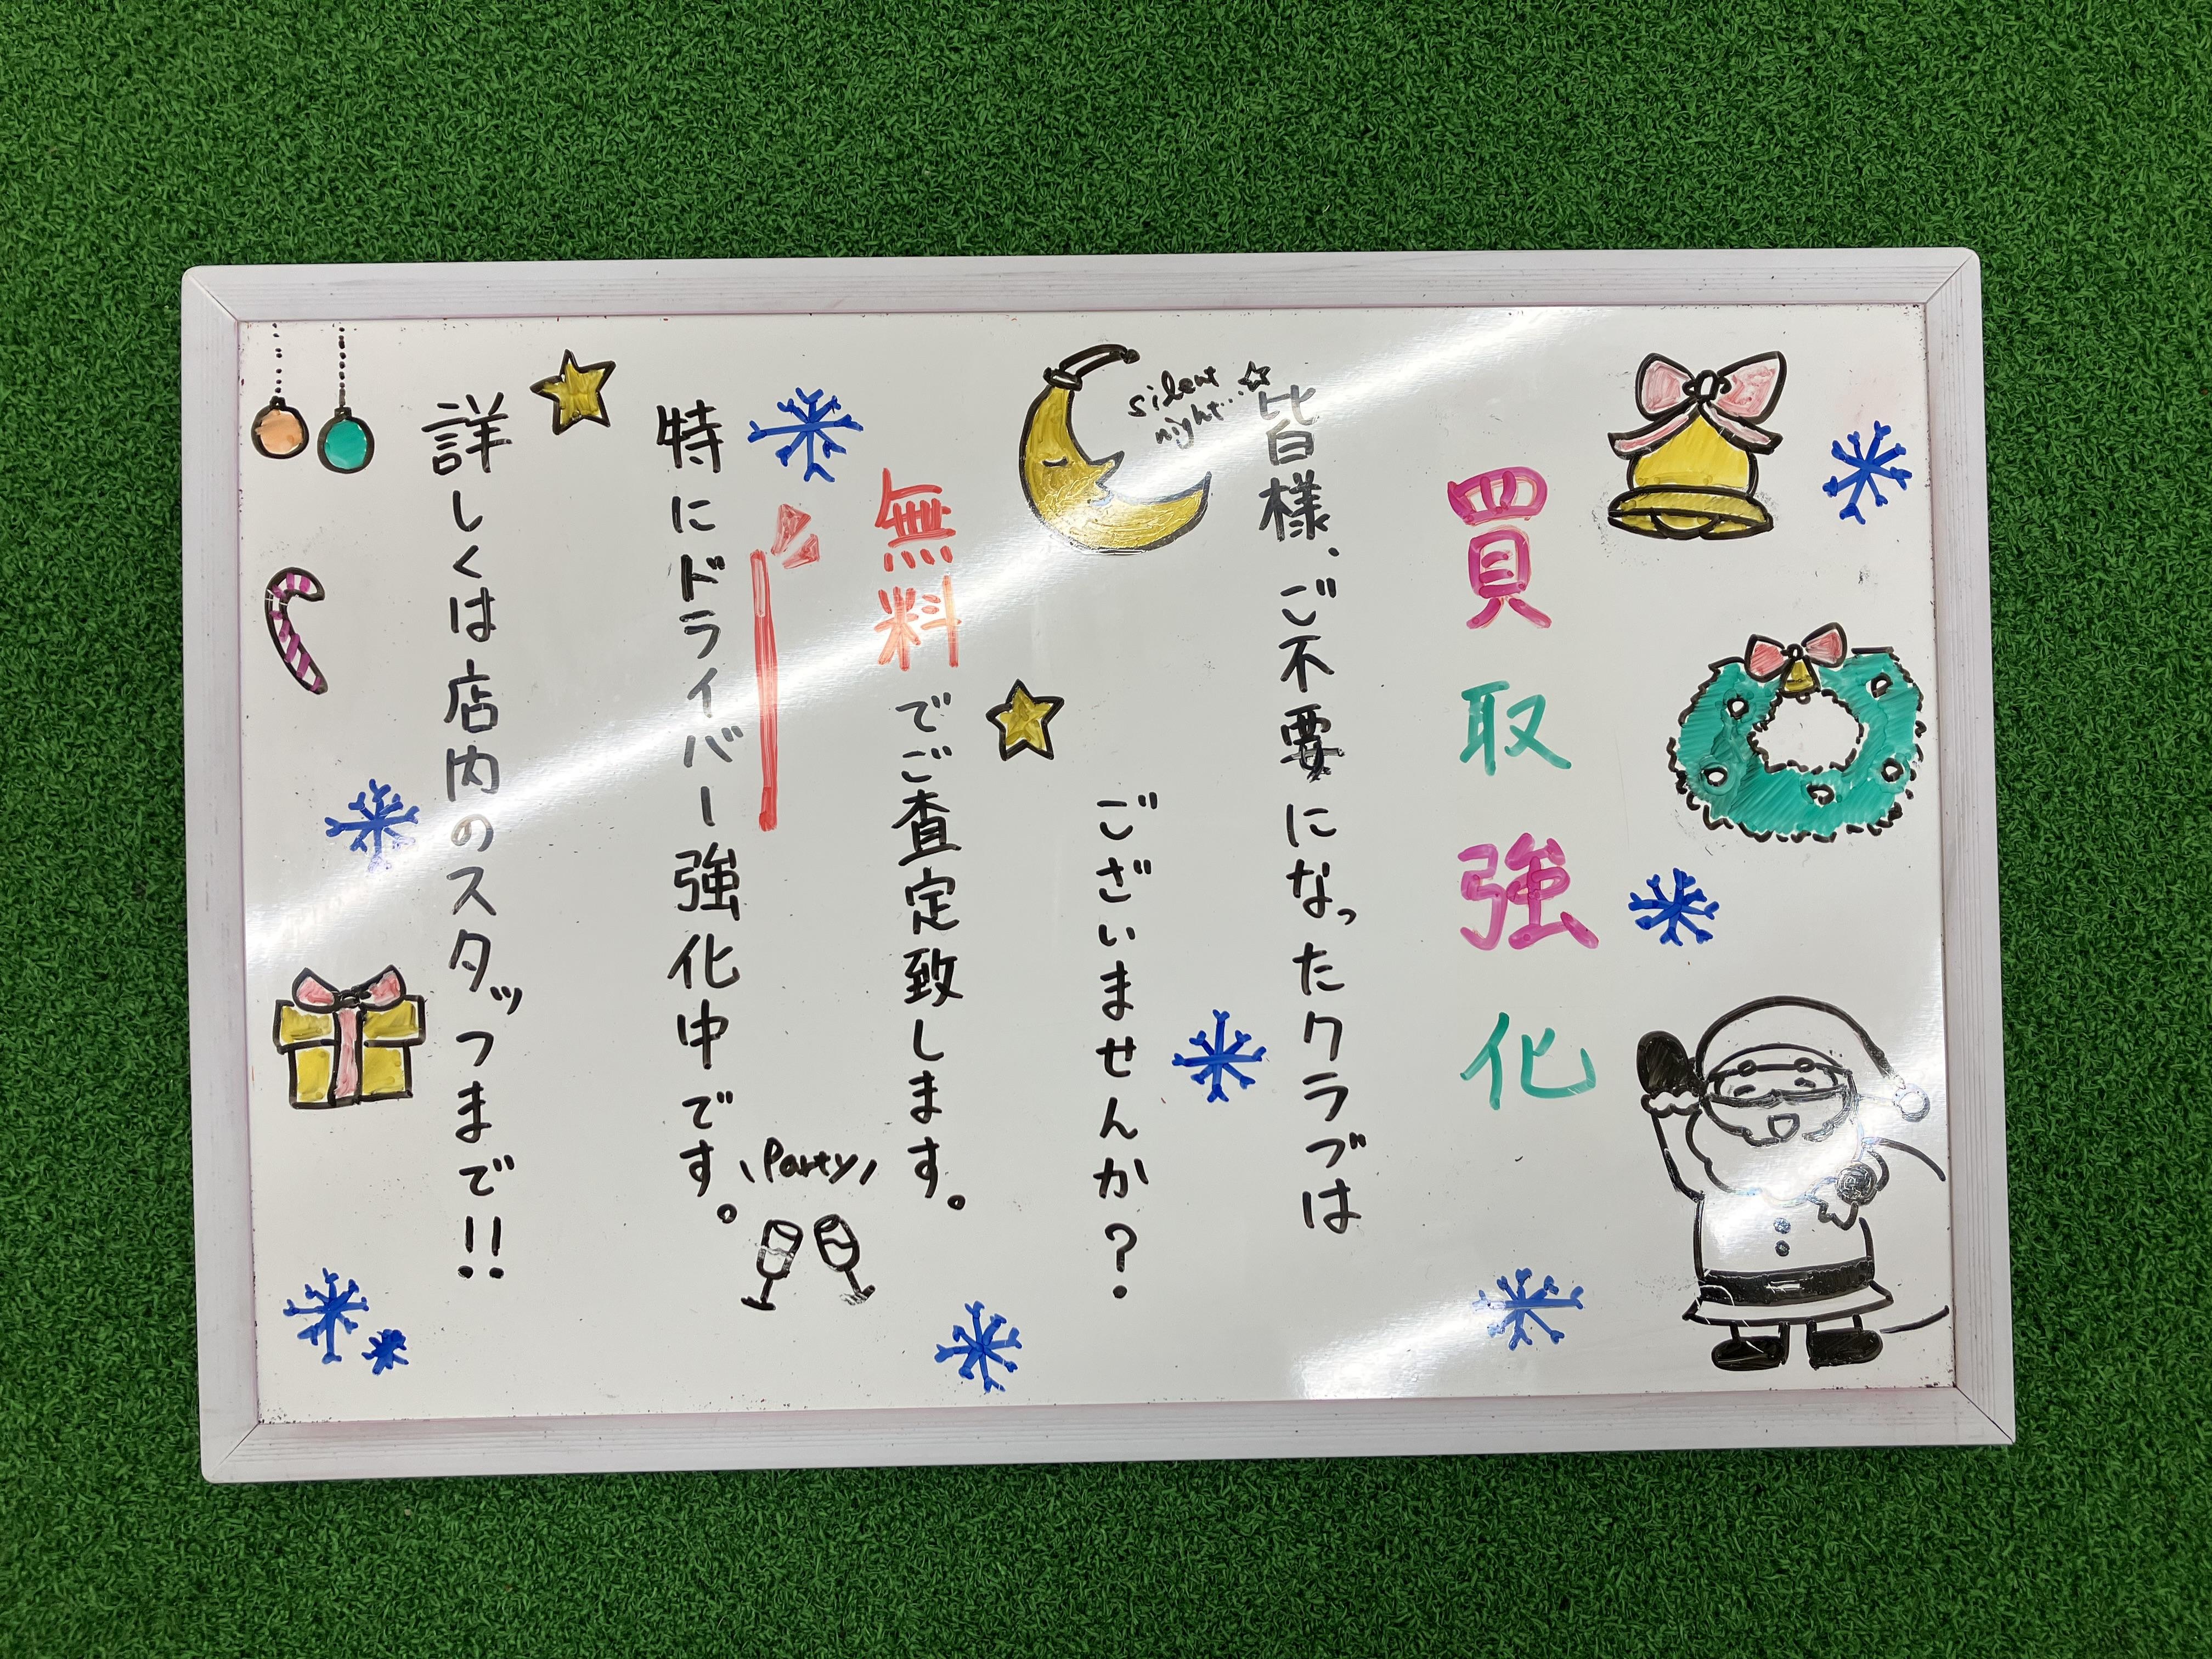 買取強化
皆様、ご不要になったクラブは
ございませんか?
無料でご査定致します。
特にドライバー強化中です。
詳しくは店内のスタッフまで!!
silent
night...☆
\Party/